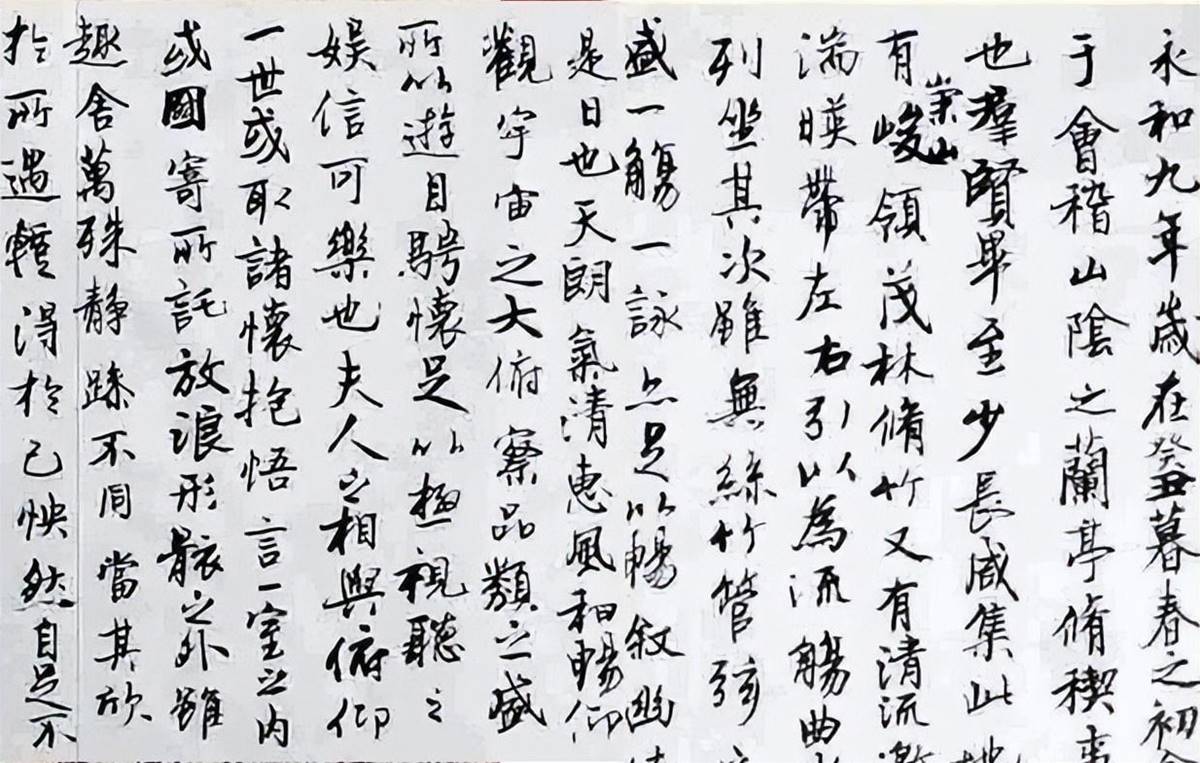 永和九年歲在癸丑暮春之初
于會稽山陰之蘭亭脩禊事
也羣賢畢至少長咸集此地
有崇山峻領茂林脩竹又有清流激
湍暎帶左右引以為流觴曲
列坐其次雖無絲竹管弦
盛一觴一詠亦足以暢敘幽
是日也天朗氣清惠風和暢仰
觀宇宙之大俯察品類之盛
所以遊目騁懷足以極視聽之
娛信可樂也夫人之相與俯仰
一世或取諸懷抱悟言一室之內
或因寄所託放浪形骸之外雖
趣舍萬殊靜躁不同當其欣
於所遇輙得於己怏然自足不